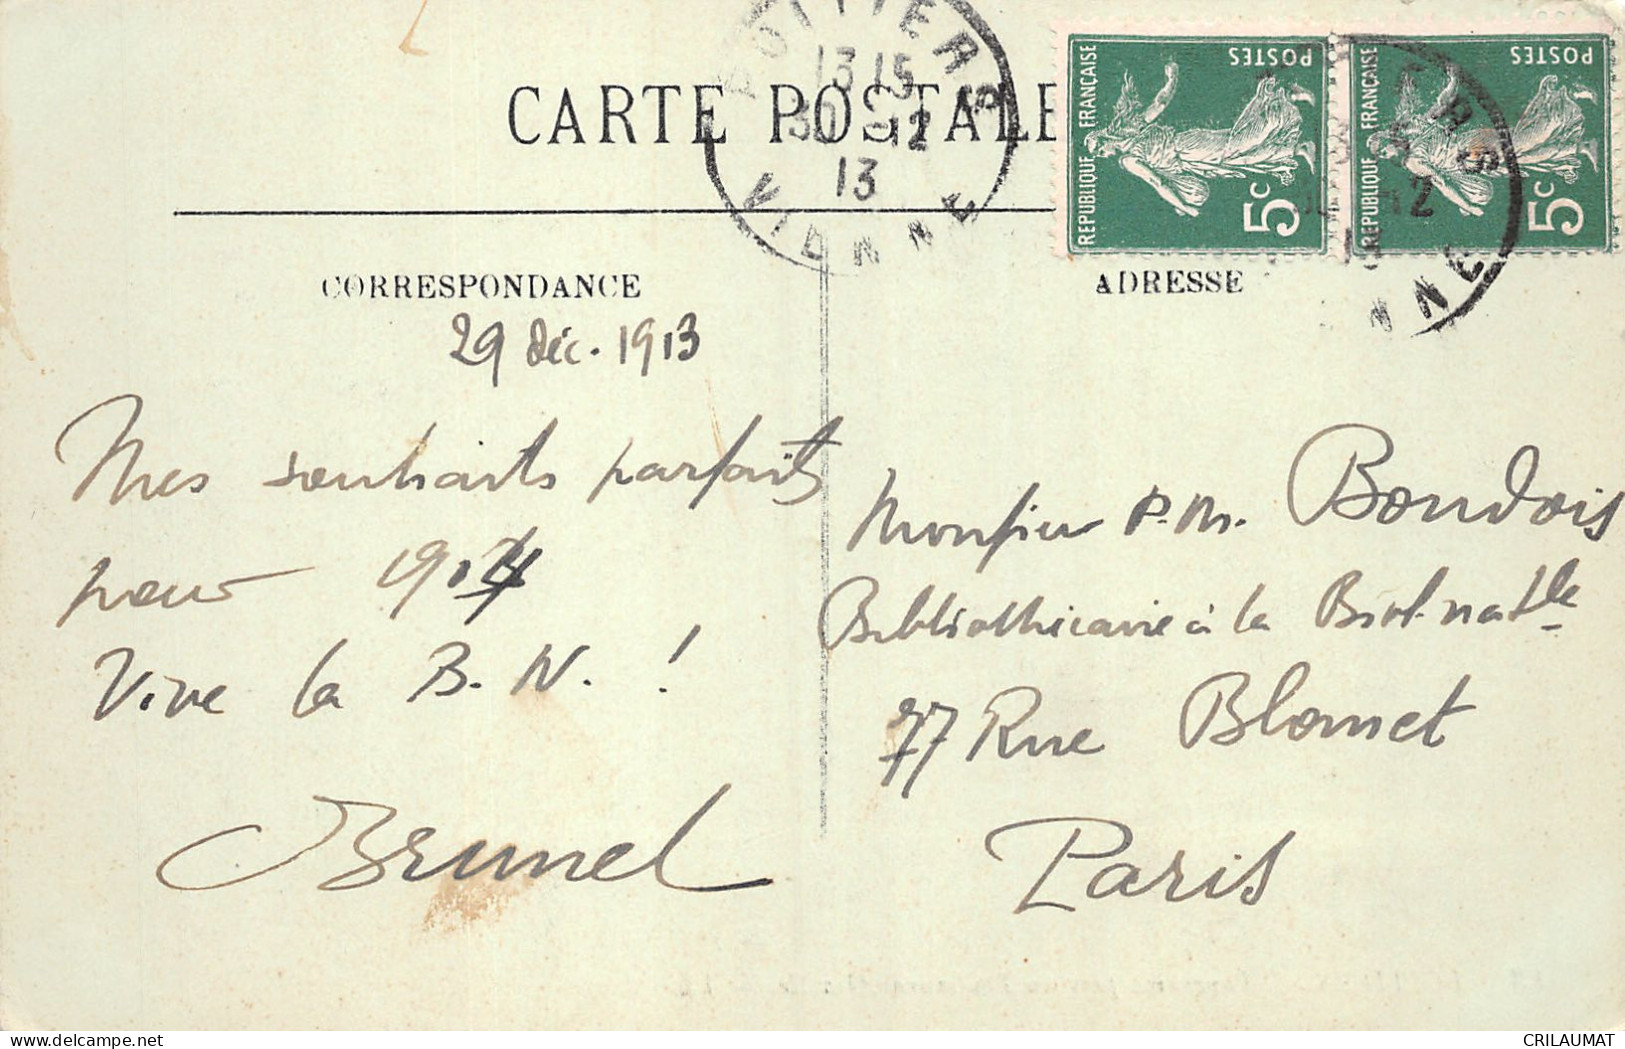 CARTE POSTALE
POITIERS
13 15
30 -12
13
VIENNE
POSTES
REPUBLIQUE FRANÇAISE
5c
POSTES
REPUBLIQUE FRANÇAISE
5c
CORRESPONDANCE
29 déc. 1913
Mes souhaits parfaits
pour 1914
Vive la B. N. !
Brunel
ADRESSE
Monsieur P.-M. Bondois
Bibliothécaire à la Bibl. natle
77 Rue Blomet
Paris
CRILAUMAT